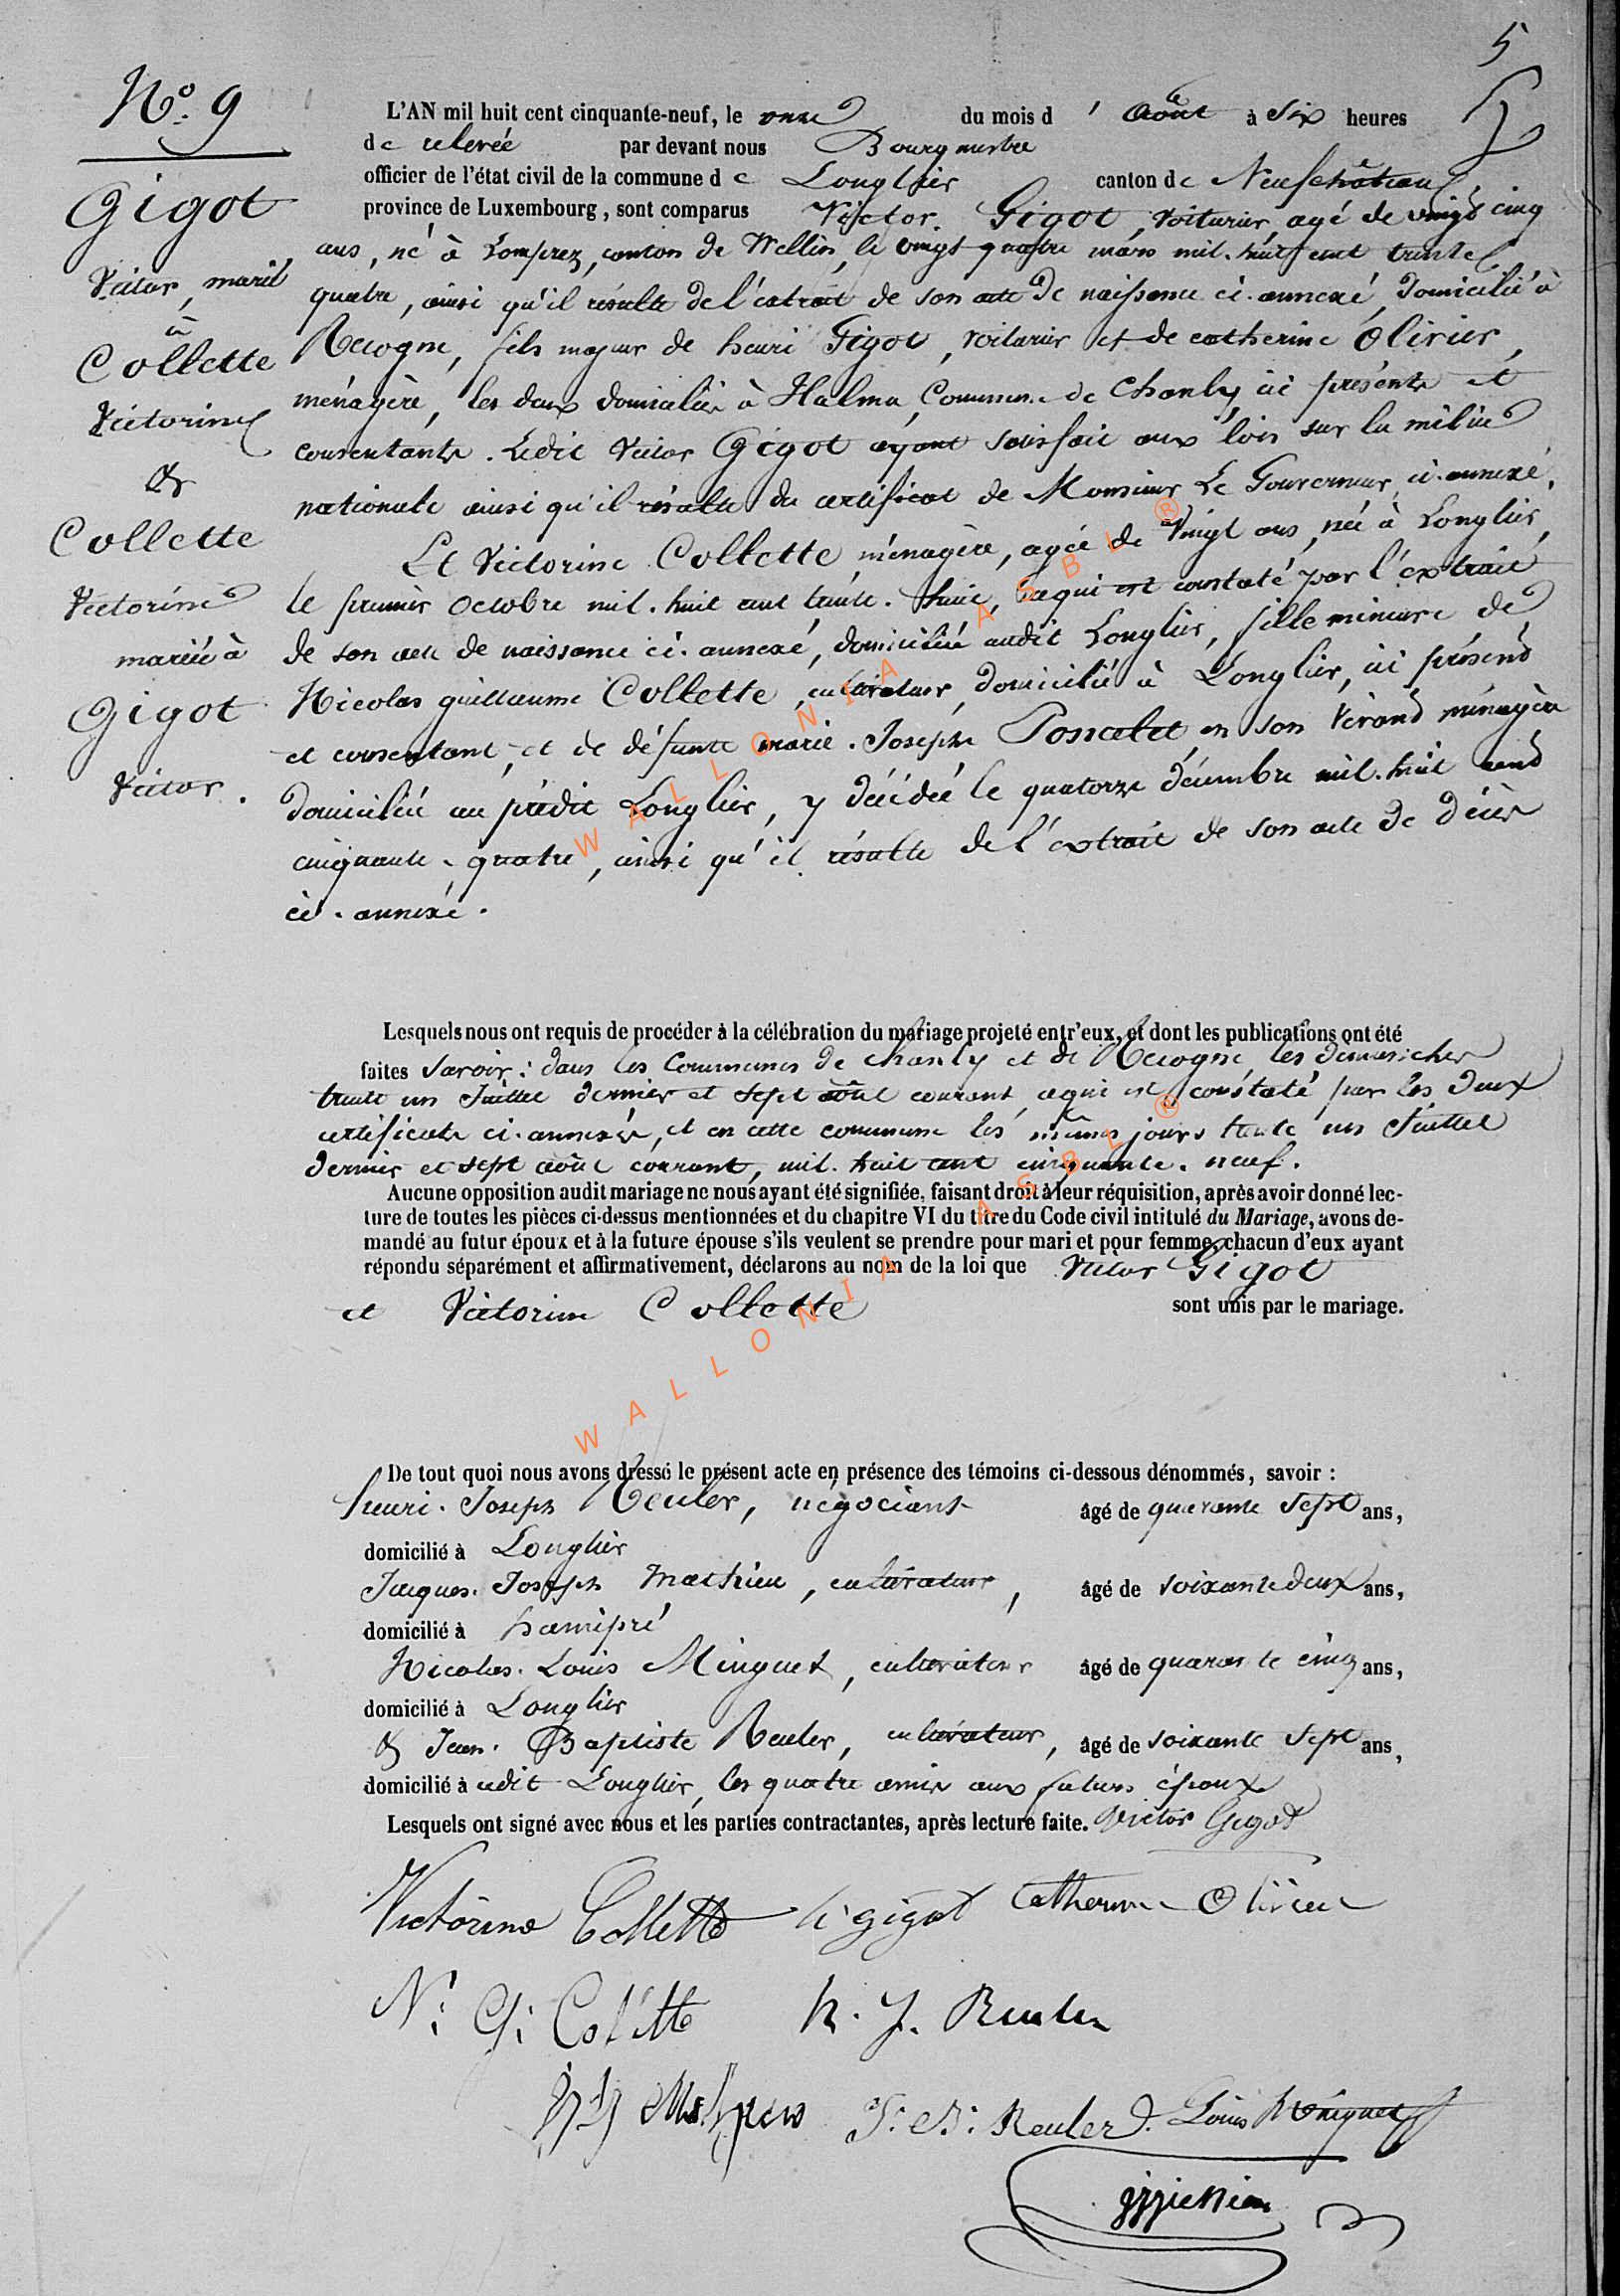 5
N° 9
Gigot
Victor, marié
à
Collette
Victorine
&
Collette
Victorine
mariée à
Gigot
Victor.
L'AN mil huit cent cinquante-neuf, le onze du mois d'Août à six heures
de relevée par devant nous Bourgmestre
officier de l'état civil de la commune de Longlier canton de Neufchâteau,
province de Luxembourg, sont comparus Victor Gigot, voiturier, agé de vingt cinq
ans, né à Lomprez, canton de Wellin, le vingt quatre mars mil. huit cent trente
quatre, ainsi qu'il résulte de l'extrait de son acte de naissance ci-annexé, domicilié à
Recogne, fils majeur de henri Gigot, voiturier et de catherine Olivier,
ménagère, les deux domiciliés à Halma, Commune de Chanly ici présents et
consentants. Ledit Victor Gigot ayant satisfait aux lois sur la milice
nationale ainsi qu'il résulte du certificat de Monsieur Le Gouverneur ci-annexé.
Et Victorine Collette ménagère, agée de vingt ans, née à Longlier,
le premier Octobre mil. huit cent trente. huit, ce qui est constaté par l'extrait
de son acte de naissance ci-annexé, domiciliée audit Longlier, fille mineure de
Nicolas guillaume Collette, cultivateur, domicilié à Longlier, ici présent
et consentant, et de défunte marie. Joseph Poncelet en son vivant ménagère
domiciliée au prédit Longlier, y décédée le quatorze décembre mil. huit cent
cinquante. quatre, ainsi qu'il résulte de l'extrait de son acte de décès
ci-annexé.
Lesquels nous ont requis de procéder à la célébration du mariage projeté entr'eux, et dont les publications ont été
faites savoir: dans les Communes de Chanly et de Recogne les dimanches
trente un Juillet dernier et sept août courant, ce qui est constaté par les deux
certificats ci-annexés, et en cette commune les mêmes jours trente un Juillet
dernier et sept août courant, mil. huit cent cinquante. neuf.
Aucune opposition audit mariage ne nous ayant été signifiée, faisant droit à leur réquisition, après avoir donné lec-
ture de toutes les pièces ci-dessus mentionnées et du chapitre VI du titre du Code civil intitulé du Mariage, avons de-
mandé au futur époux et à la future épouse s'ils veulent se prendre pour mari et pour femme, chacun d'eux ayant
répondu séparément et affirmativement, déclarons au nom de la loi que Victor Gigot
et Victorine Collette sont unis par le mariage.
De tout quoi nous avons dressé le présent acte en présence des témoins ci-dessous dénommés, savoir :
henri. Joseph Reuler, négociant âgé de quarante sept ans,
domicilié à Longlier
Jacques. Joseph Mathieu, cultivateur, âgé de soixante deux ans,
domicilié à hamipré
Nicolas. Louis Minguet, cultivateur âgé de quarante cinq ans,
domicilié à Longlier
& Jean. Baptiste Reuler, cultivateur, âgé de soixante sept ans,
domicilié à udit Longlier, les quatre amis aux futurs époux
Lesquels ont signé avec nous et les parties contractantes, après lecture faite. Victor Gigot
Victorine Collette h gigot Catherine Olivier
N: G: Collette h. J. Reuler
JJ Mathieu J: B: Reuler Louis Minguet
WALLONIA ASBL ®
WALLONIA ASBL ®